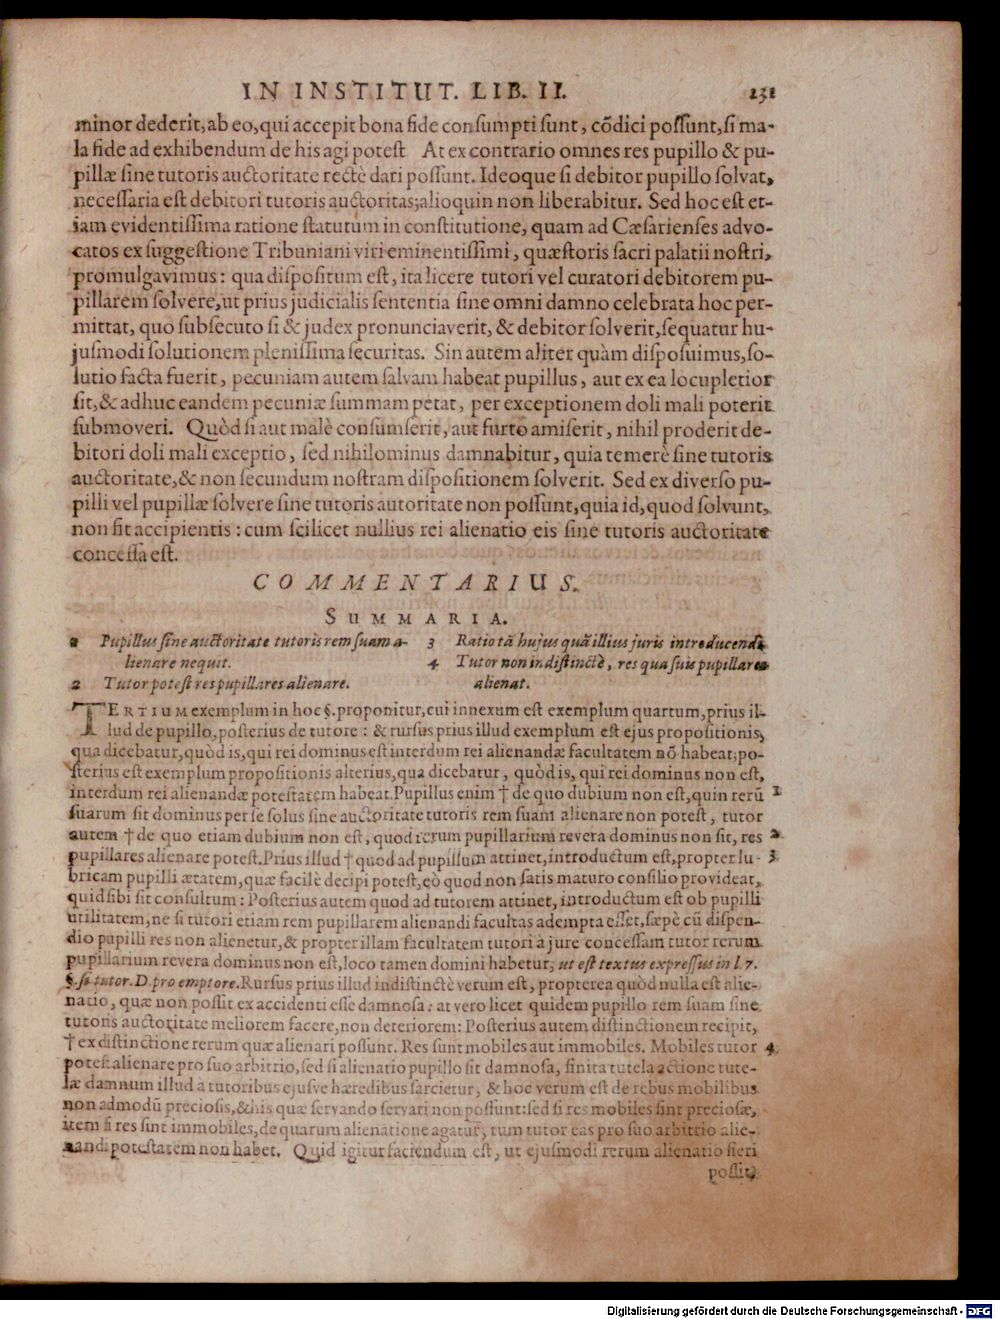 IN INSTITUT. LIB. II. 231
minor dederit, ab eo, qui accepit bona fide consumpti sunt, cõdici possunt, si ma-
la fide ad exhibendum de his agi potest At ex contrario omnes res pupillo & pu-
pillæ sine tutoris auctoritate rectè dari possunt. Ideoque si debitor pupillo solvat,
necessaria est debitori tutoris auctoritas; alioquin non liberabitur. Sed hoc est et-
iam evidentissima ratione statutum in constitutione, quam ad Cæsarienses advo-
catos ex suggestione Tribuniani viri eminentissimi, quæstoris sacri palatii nostri,
promulgavimus: qua dispositum est, ita licere tutori vel curatori debitorem pu-
pillarem solvere, ut prius judicialis sententia sine omni damno celebrata hoc per-
mittat, quo subsecuto si & judex pronunciaverit, & debitor solverit, sequatur hu-
jusmodi solutionem plenissima securitas. Sin autem aliter quàm disposuimus, so-
lutio facta fuerit, pecuniam autem salvam habeat pupillus, aut ex ea locupletior
sit, & adhuc eandem pecuniæ summam petat, per exceptionem doli mali poterit
submoveri. Quòd si aut malè consumserit, aut furto amiserit, nihil proderit de-
bitori doli mali exceptio, sed nihilominus damnabitur, quia temerè sine tutoris
auctoritate, & non secundum nostram dispositionem solverit. Sed ex diverso pu-
pilli vel pupillæ solvere sine tutoris autoritate non possunt, quia id, quod solvunt,
non fit accipientis: cum scilicet nullius rei alienatio eis sine tutoris auctoritate
concessa est.
COMMENTARIUS.
SUMMARIA.
1 Pupillus sine auctoritate tutoris rem suam a-
lienare nequit.
2 Tutor potest res pupillares alienare.
3 Ratio tã hujus quã illius juris introducendi.
4 Tutor non indistinctè, res qua suis pupillares
alienat.
TERTIUM exemplum in hoc §. proponitur, cui innexum est exemplum quartum, prius il-
lud de pupillo, posterius de tutore: & rursus prius illud exemplum est ejus propositionis,
qua dicebatur, quòd is, qui rei dominus est interdum rei alienandæ facultatem nõ habeat; po-
sterius est exemplum propositionis alterius, qua dicebatur, quòd is, qui rei dominus non est,
interdum rei alienandæ potestatem habeat. Pupillus enim † de quo dubium non est, quin rerũ 1
suarum sit dominus per se solus sine auctoritate tutoris rem suam alienare non potest, tutor
autem † de quo etiam dubium non est, quod rerum pupillarium revera dominus non sit, res 2
pupillares alienare potest. Prius illud † quod ad pupillum attinet, introductum est, propter lu- 3
bricam pupilli ætatem, quæ facilè decipi potest, eò quod non satis maturo consilio provideat,
quid sibi sit consultum: Posterius autem quod ad tutorem attinet, introductum est ob pupilli
utilitatem, ne si tutori etiam rem pupillarem alienandi facultas adempta esset, sæpè cũ dispen-
dio pupilli res non alienetur, & propter illam facultatem tutori à jure concessam tutor rerum
pupillarium revera dominus non est, loco tamen domini habetur, ut est textus expressus in l. 7.
§. si tutor. D. pro emptore. Rursus prius illud indistinctè verum est, propterea quòd nulla est alie-
natio, quæ non possit ex accidenti esse damnosa: at vero licet quidem pupillo rem suam sine
tutoris auctoritate meliorem facere, non deteriorem: Posterius autem distinctionem recipit,
† ex distinctione rerum quæ alienari possunt. Res sunt mobiles aut immobiles. Mobiles tutor 4
potest alienare pro suo arbitrio, sed si alienatio pupillo sit damnosa, finita tutela actione tute-
læ damnum illud à tutoribus ejusve hæredibus sarcietur, & hoc verum est de rebus mobilibus
non admodũ preciosis, & his quæ servando servari non possunt: sed si res mobiles sint preciosæ,
item si res sint immobiles, de quarum alienatione agatur, tum tutor eas pro suo arbitrio alie-
nandi potestatem non habet. Quid igitur faciendum est, ut ejusmodi rerum alienatio fieri
possit,
Digitalisierung gefördert durch die Deutsche Forschungsgemeinschaft - DFG